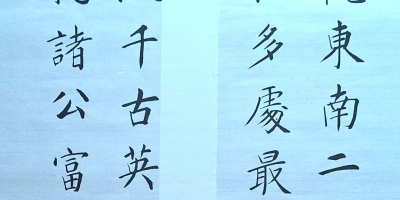 東南二
多處最
千古英
諸公富